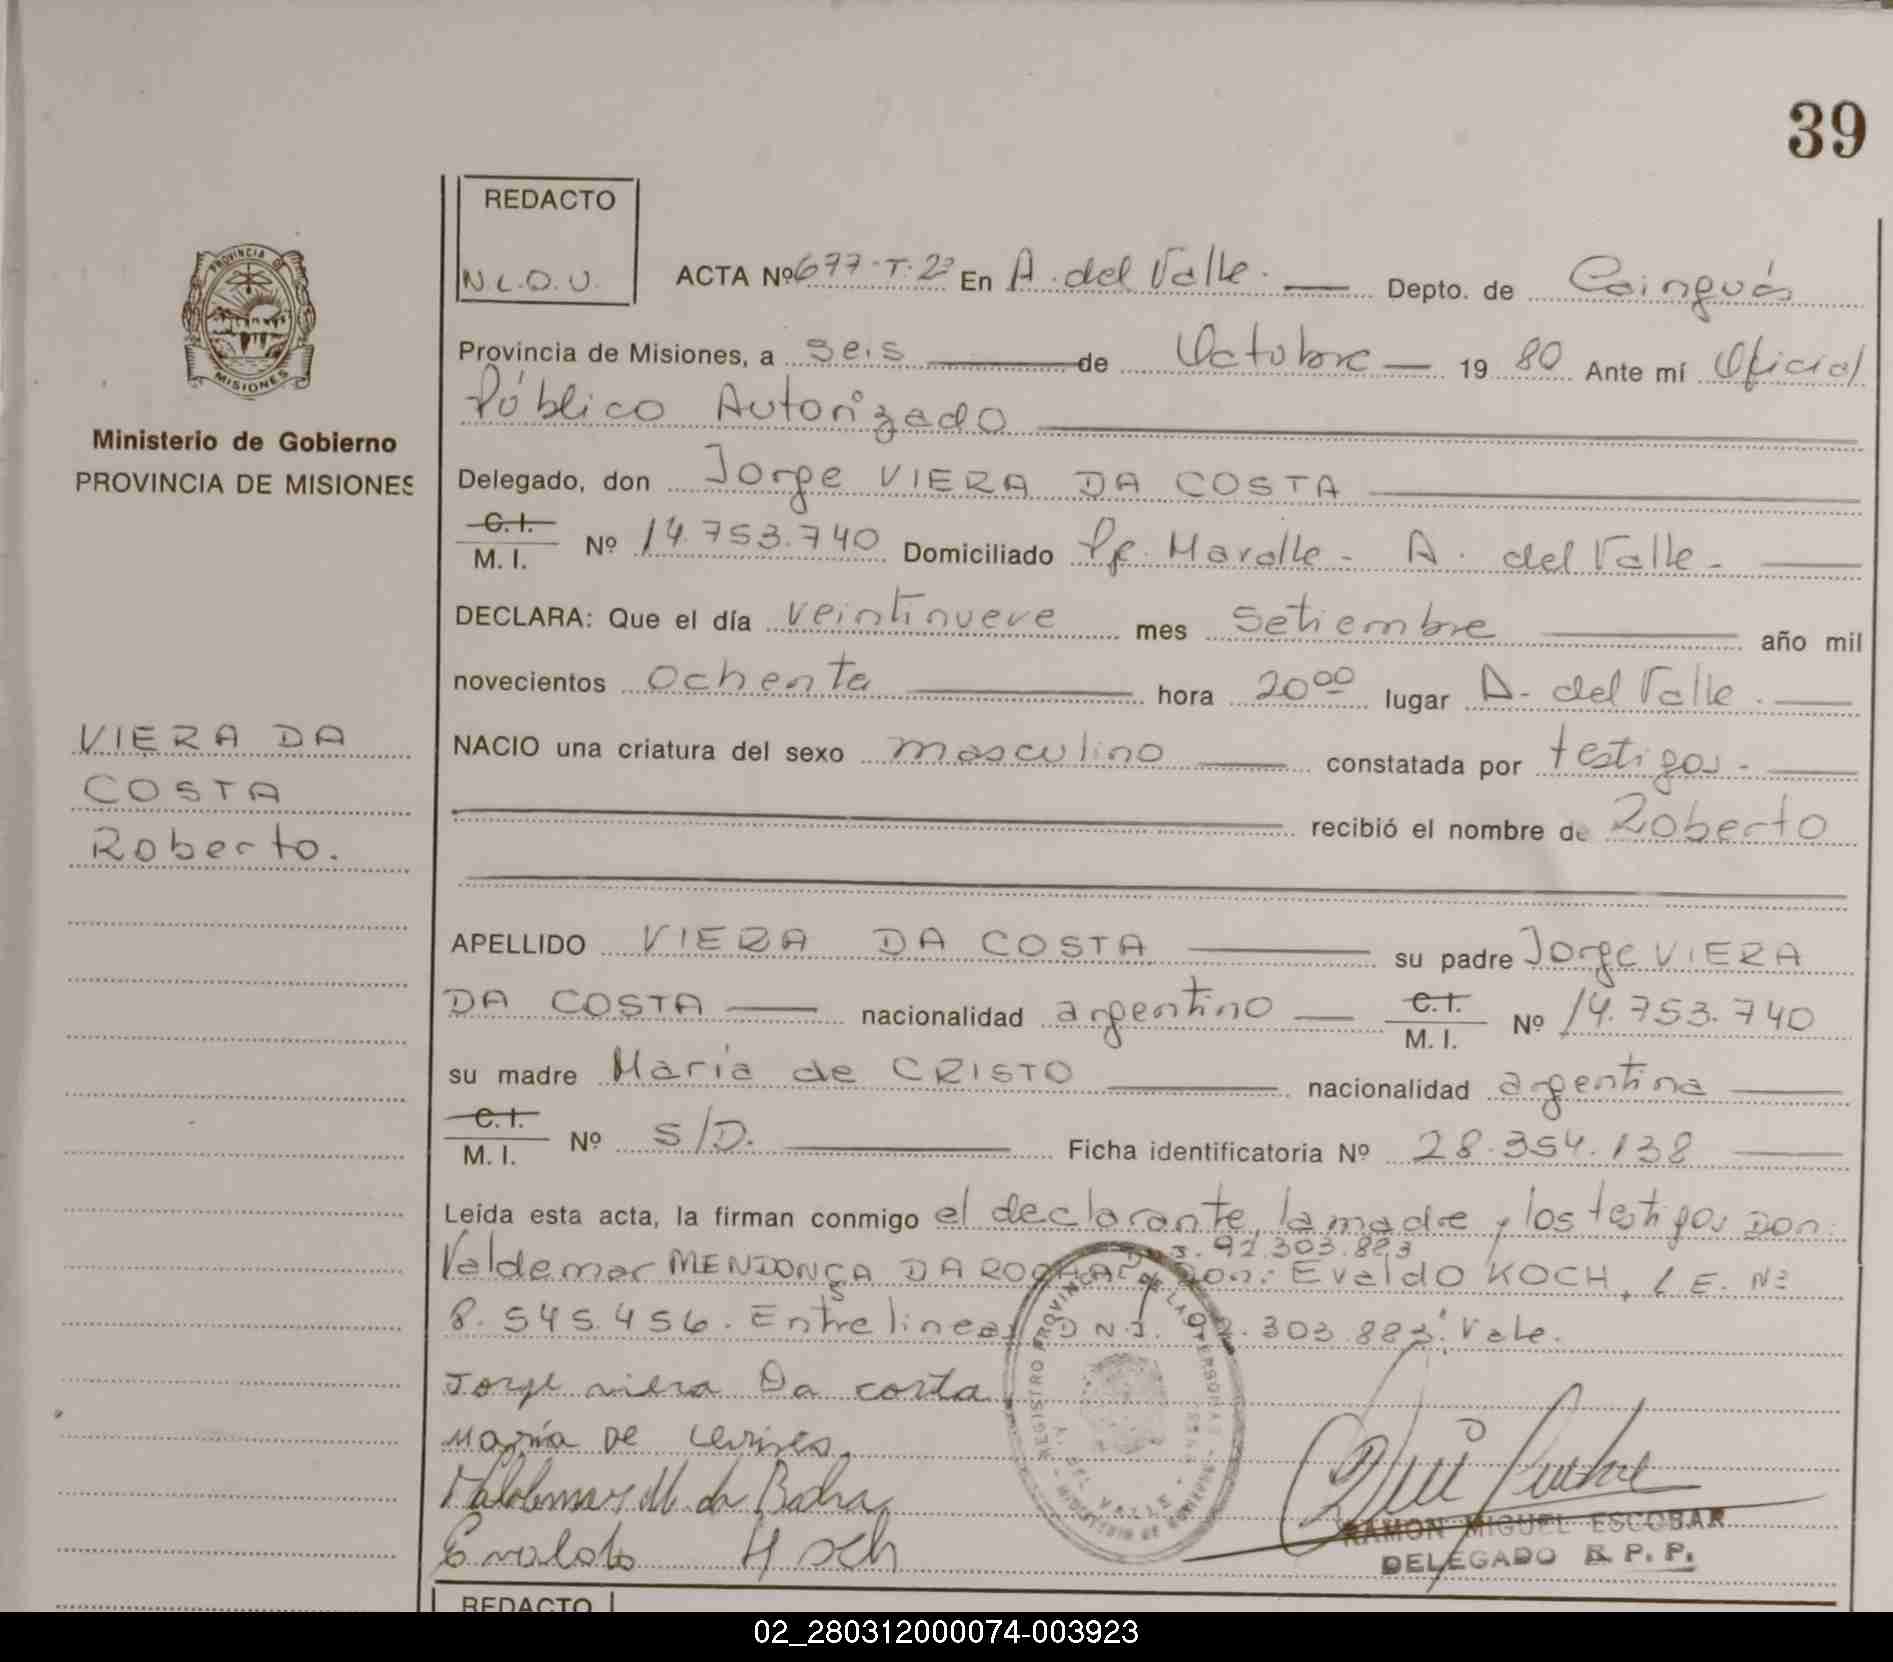 39
REDACTO
N.L.O.U.
ACTA Nº 677-T-2º En A. del Valle. Depto. de Cainguás
Provincia de Misiones, a seis de Octubre 19 80 Ante mí Oficial
Público Autorizado
Delegado, don Jorge VIERA DA COSTA
C. I.
M. I. Nº 14.753.740 Domiciliado Pje. Maralle - A. del Valle -
DECLARA: Que el día veintinueve mes Setiembre año mil
novecientos ochenta hora 20⁰⁰ lugar A. del Valle.
NACIO una criatura del sexo masculino constatada por testigos.-
recibió el nombre de Roberto
APELLIDO VIERA DA COSTA su padre Jorge VIERA
DA COSTA nacionalidad argentino C. I. M. I. Nº 14.753.740
su madre María de CRISTO nacionalidad argentina
C. I.
M. I. Nº S/D. Ficha identificatoria Nº 28.354.138
Leída esta acta, la firman conmigo el declarante, la madre y los testigos Don:
D.N.I. 92.303.883
Valdemar MENDONÇA DA ROCHA y Don: Evaldo KOCH, L.E. Nº
8.545.456. Entre lineas D.N.I. 92.303.883: Vale.
Jorge viera Da costa
María DE
Valdemar M. da Rocha
Evaldo Koch
REGISTRO PROVINCIAL DE LAS PERSONAS
A. DEL VALLE
MINISTERIO DE GOBIERNO
RAMON MIGUEL ESCOBAR
DELEGADO R. P. P.
PROVINCIA DE
MISIONES
Ministerio de Gobierno
PROVINCIA DE MISIONES
VIERA DA
COSTA
Roberto.
REDACTO
02_280312000074-003923